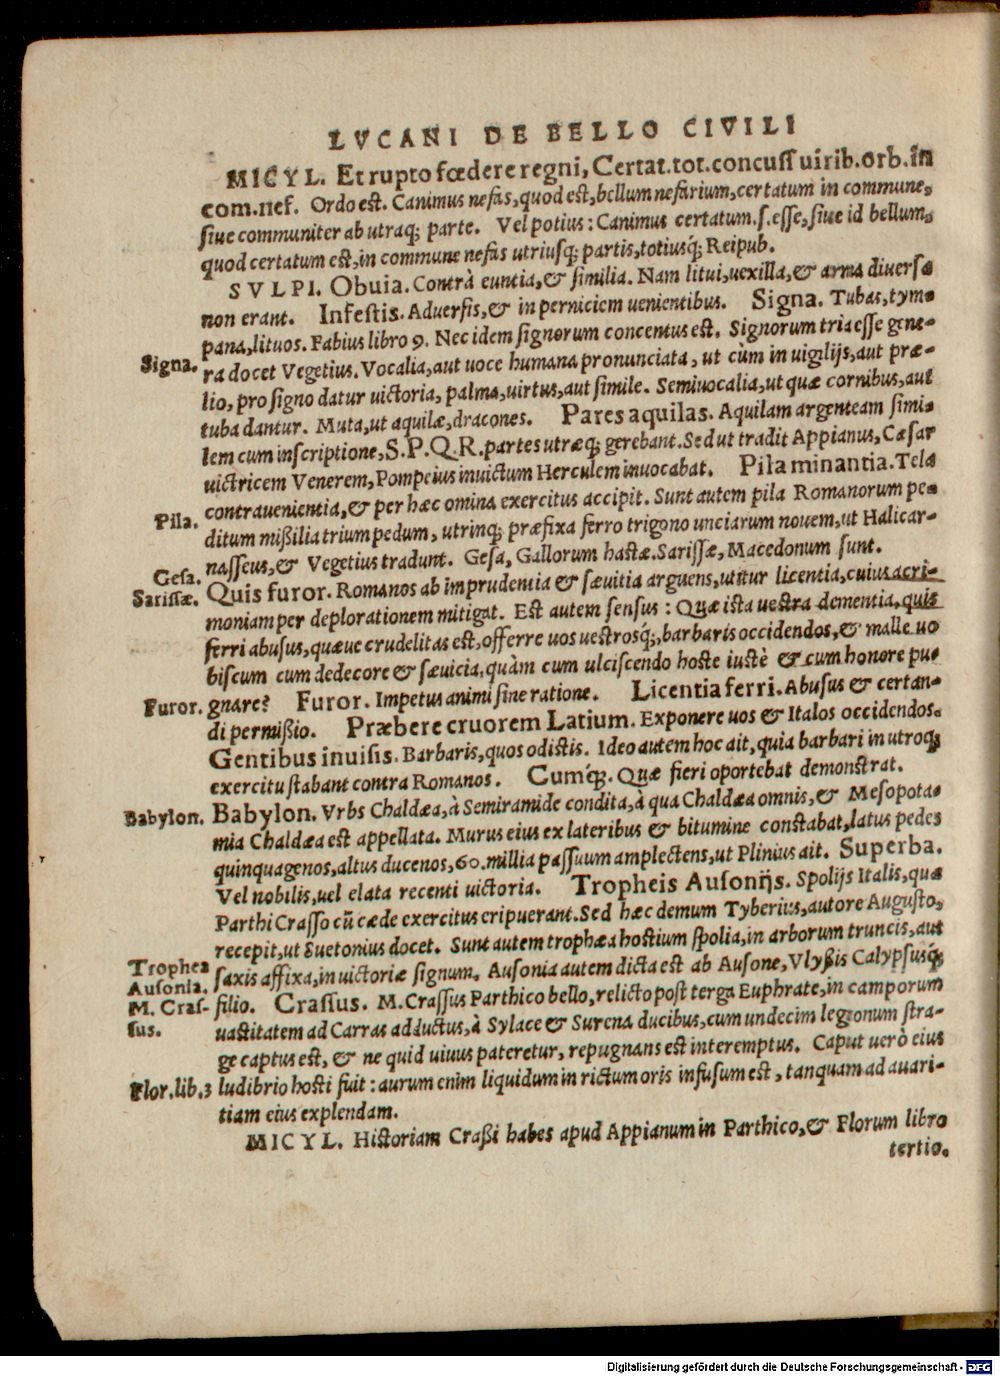 LVCANI DE BELLO CIVILI
MICYL. Et rupto fœdere regni, Certat. tot. concuss uirib. orb. in
com. nef. Ordo est. Canimus nefas, quod est, bellum nefarium, certatum in commune,
siue communiter ab utraq; parte. Vel potius: Canimus certatum. s. esse, siue id bellum,
quod certatum est, in commune nefas utriusq; partis, totiusq; Reipub.
SVLPI. Obuia. Contrà euntia, & similia. Nam litui, uexilla, & arma diuersa
non erant. Infestis. Aduersis, & in perniciem uenientibus. Signa. Tubas, tym-
pana, lituos. Fabius libro 9. Nec idem signorum concentus est. Signorum tria esse gene-
Signa. ra docet Vegetius. Vocalia, aut uoce humana pronunciata, ut cùm in uigilijs, aut præ-
lio, pro signo datur uictoria, palma, uirtus, aut simile. Semiuocalia, ut quæ cornibus, aut
tuba dantur. Muta, ut aquilæ, dracones. Pares aquilas. Aquilam argenteam simi-
lem cum inscriptione, S.P.Q.R. partes utræq; gerebant. Sed ut tradit Appianus, Cæsar
uictricem Venerem, Pompeius inuictum Herculem inuocabat. Pila minantia. Tela
contrauenientia, & per hæc omina exercitus accipit. Sunt autem pila Romanorum pe-
Pila. ditum mißilia trium pedum, utrinq; præfixa ferro trigono unciarum nouem, ut Halicar-
nasseus, & Vegetius tradunt. Gesa, Gallorum hastæ. Sarissæ, Macedonum sunt.
Gesa.
Sarissæ. Quis furor. Romanos ab imprudentia & sæuitia arguens, utitur licentia, cuius acri-
moniam per deplorationem mitigat. Est autem sensus: Quæ ista uestra dementia, quis
ferri abusus, quæue crudelitas est, offerre uos uestrosq́;, barbaris occidendos, & malle uo
biscum cum dedecore & sæuicia, quàm cum ulciscendo hoste iustè & cum honore pu-
Furor. gnare? Furor. Impetus animi sine ratione. Licentia ferri. Abusus & certan-
di permißio. Præbere cruorem Latium. Exponere uos & Italos occidendos.
Gentibus inuisis. Barbaris, quos odistis. Ideo autem hoc ait, quia barbari in utroq;
exercitu stabant contra Romanos. Cumq́;. Quæ fieri oportebat demonstrat.
Babylon. Babylon. Vrbs Chaldæa, à Semiramide condita, à qua Chaldæa omnis, & Mesopota-
mia Chaldæa est appellata. Murus eius ex lateribus & bitumine constabat, latus pedes
quinquagenos, altus ducenos, 60. millia passuum amplectens, ut Plinius ait. Superba.
Vel nobilis, uel elata recenti uictoria. Tropheis Ausonijs. Spolijs Italis, quæ
Parthi Crasso cū cæde exercitus eripuerant. Sed hæc demum Tyberius, autore Augusto,
recepit, ut Suetonius docet. Sunt autem trophæa hostium spolia, in arborum truncis, aut
Trophea saxis affixa, in uictoriæ signum. Ausonia autem dicta est ab Ausone, Vlyßis Calypsusq́;
Ausonia.
M. Cras- filio. Crassus. M. Crassus Parthico bello, relicto post terga Euphrate, in camporum
sus. uastitatem ad Carras adductus, à Sylace & Surena ducibus, cum undecim legionum stra-
ge captus est, & ne quid uiuus pateretur, repugnans est interemptus. Caput uerò eius
Flor. lib. 3 ludibrio hosti fuit: aurum enim liquidum in rictum oris infusum est, tanquam ad auari-
tiam eius explendam.
MICYL. Historiam Craßi habes apud Appianum in Parthico, & Florum libro
tertio.
Digitalisierung gefördert durch die Deutsche Forschungsgemeinschaft - DFG